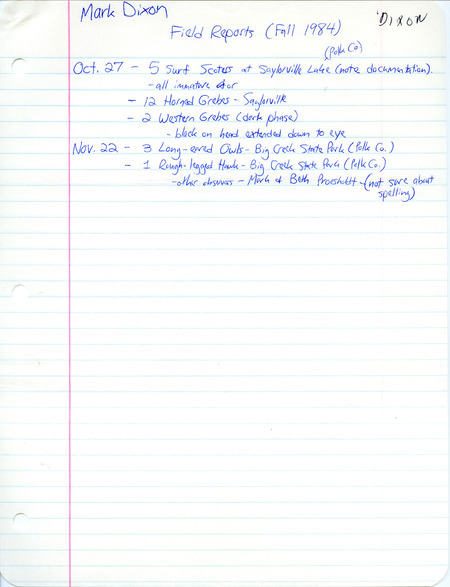 Mark Dixon
DIXON
Field Reports (Fall 1984)
(Polk Co)
Oct. 27 - 5 Surf Scoters at Saylorville Lake (note documentation).
- all immature or
- 12 Horned Grebes - Saylorville
- 2 Western Grebes (dark phase)
- black on head extended down to eye
Nov. 22 - 3 Long-eared Owls - Big Creek State Park (Polk Co.)
- 1 Rough-legged Hawk - Big Creek State Park (Polk Co.)
- other observers - Mark & Beth Proescholdt - (not sure about
spelling)